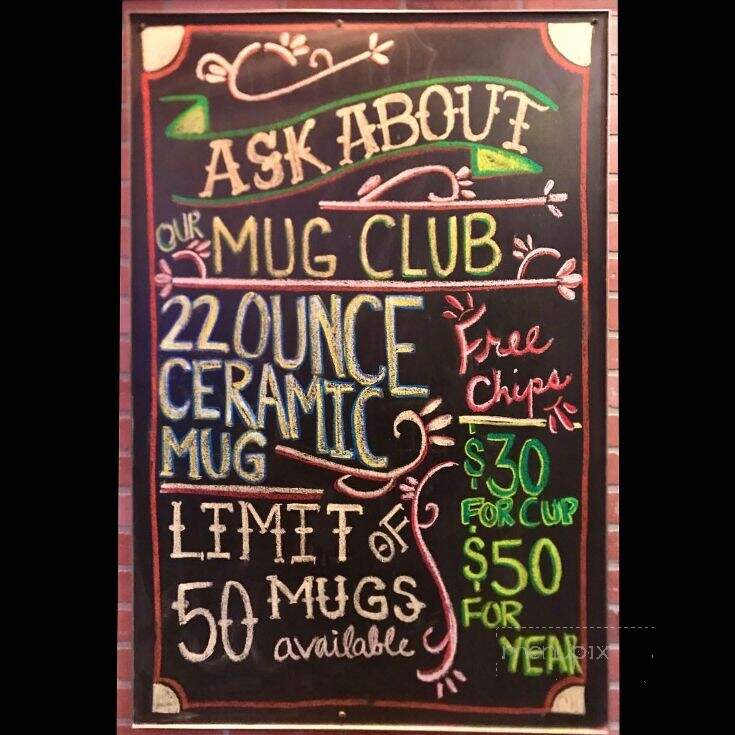 ASK ABOUT
OUR MUG CLUB
22 OUNCE
CERAMIC
MUG
LIMIT OF
50 MUGS
available
Free
Chips
$30
FOR CUP
$50
FOR
YEAR
menupix